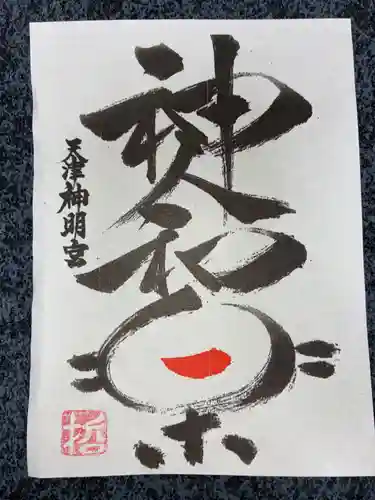 神人和楽
天津神明宮
哲